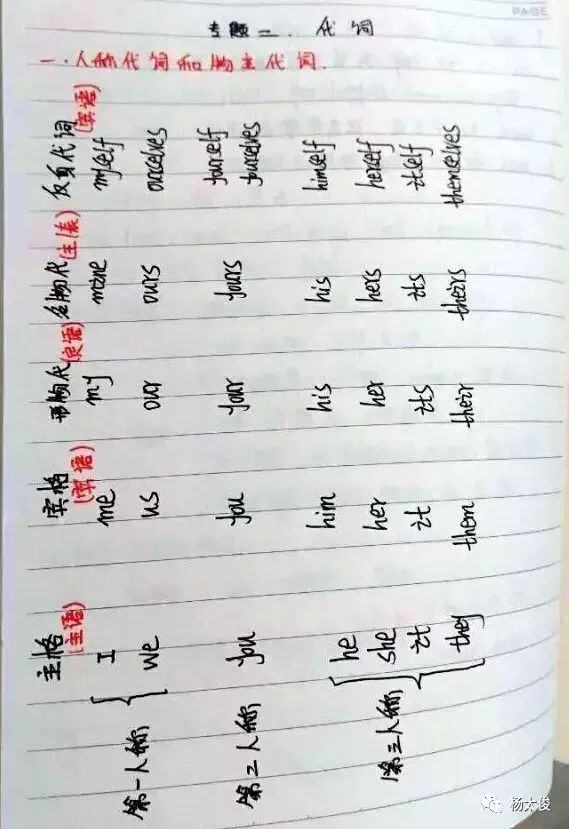 PAGE
专题二. 代词
一.人称代词和物主代词.
主格 宾格 形物代 名物代 反身代词
(主语) (宾语) (定语) (主/宾/表) (宾语)
第一人称 { I me my mine myself
we us our ours ourselves
第2人称 you you your yours yourself
yourselves
第三人称 { he him his his himself
she her her hers herself
it it its its itself
they them their theirs themselves
杨太俊